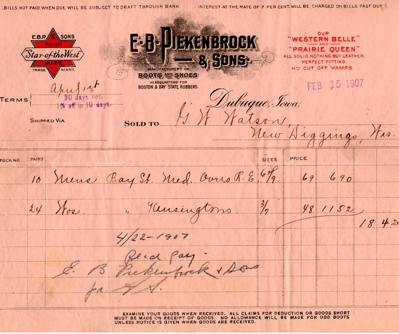 BILLS NOT PAID WHEN DUE WILL BE SUBJECT TO DRAFT THROUGH BANK    INTEREST AT THE RATE OF 7 PER CENT WILL BE CHARGED ON BILLS PAST DUE
E.B.P. & SONS
HAND
Star-of-the-West
MADE
TRADE MARK
E·B·PIEKENBROCK
& SONS
MANUFACTURERS OF
BOOTS AND SHOES
HEADQUARTERS FOR
BOSTON & BAY STATE RUBBERS
OUR
"WESTERN BELLE"
AND
"PRAIRIE QUEEN"
ALL SOLID, NOTHING BUT LEATHER,
PERFECT FITTING.
NO CUT OFF VAMPS
FEB 15 1907
TERMS April 1st
30 days net.
1% off in 10 days.
Dubuque, Iowa
SHIPPED VIA
SOLD TO G W Watson,
New Diggings, Wis.
STOCK NO. PAIRS SIZES PRICE
10 Mens Bay St. Med. Overs R.E. 6/9 69 6 90
24 Wos. " Kensingtons 3/7 48 11 52
18.42
4/22-1907
Recd Pay.
E. B. Piekenbrock & Sons
EXAMINE YOUR GOODS WHEN RECEIVED. ALL CLAIMS FOR DEDUCTION OR GOODS SHORT
MUST BE MADE ON RECEIPT OF GOODS. NO ALLOWANCE WILL BE MADE FOR ODD BOOTS
UNLESS NOTICE IS GIVEN WHEN GOODS ARE RECEIVED.